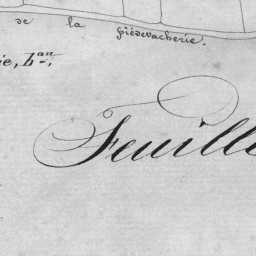 de la piédevacherie.
ie, b.an
Feuille